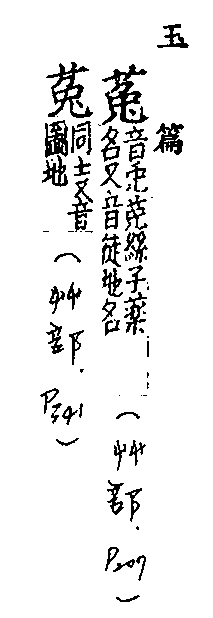 玉篇
菟
音兎菟絲子藥
名又音徒地名
(艸部. P207)
莵
同上又音
圖地
(艸部. P341)